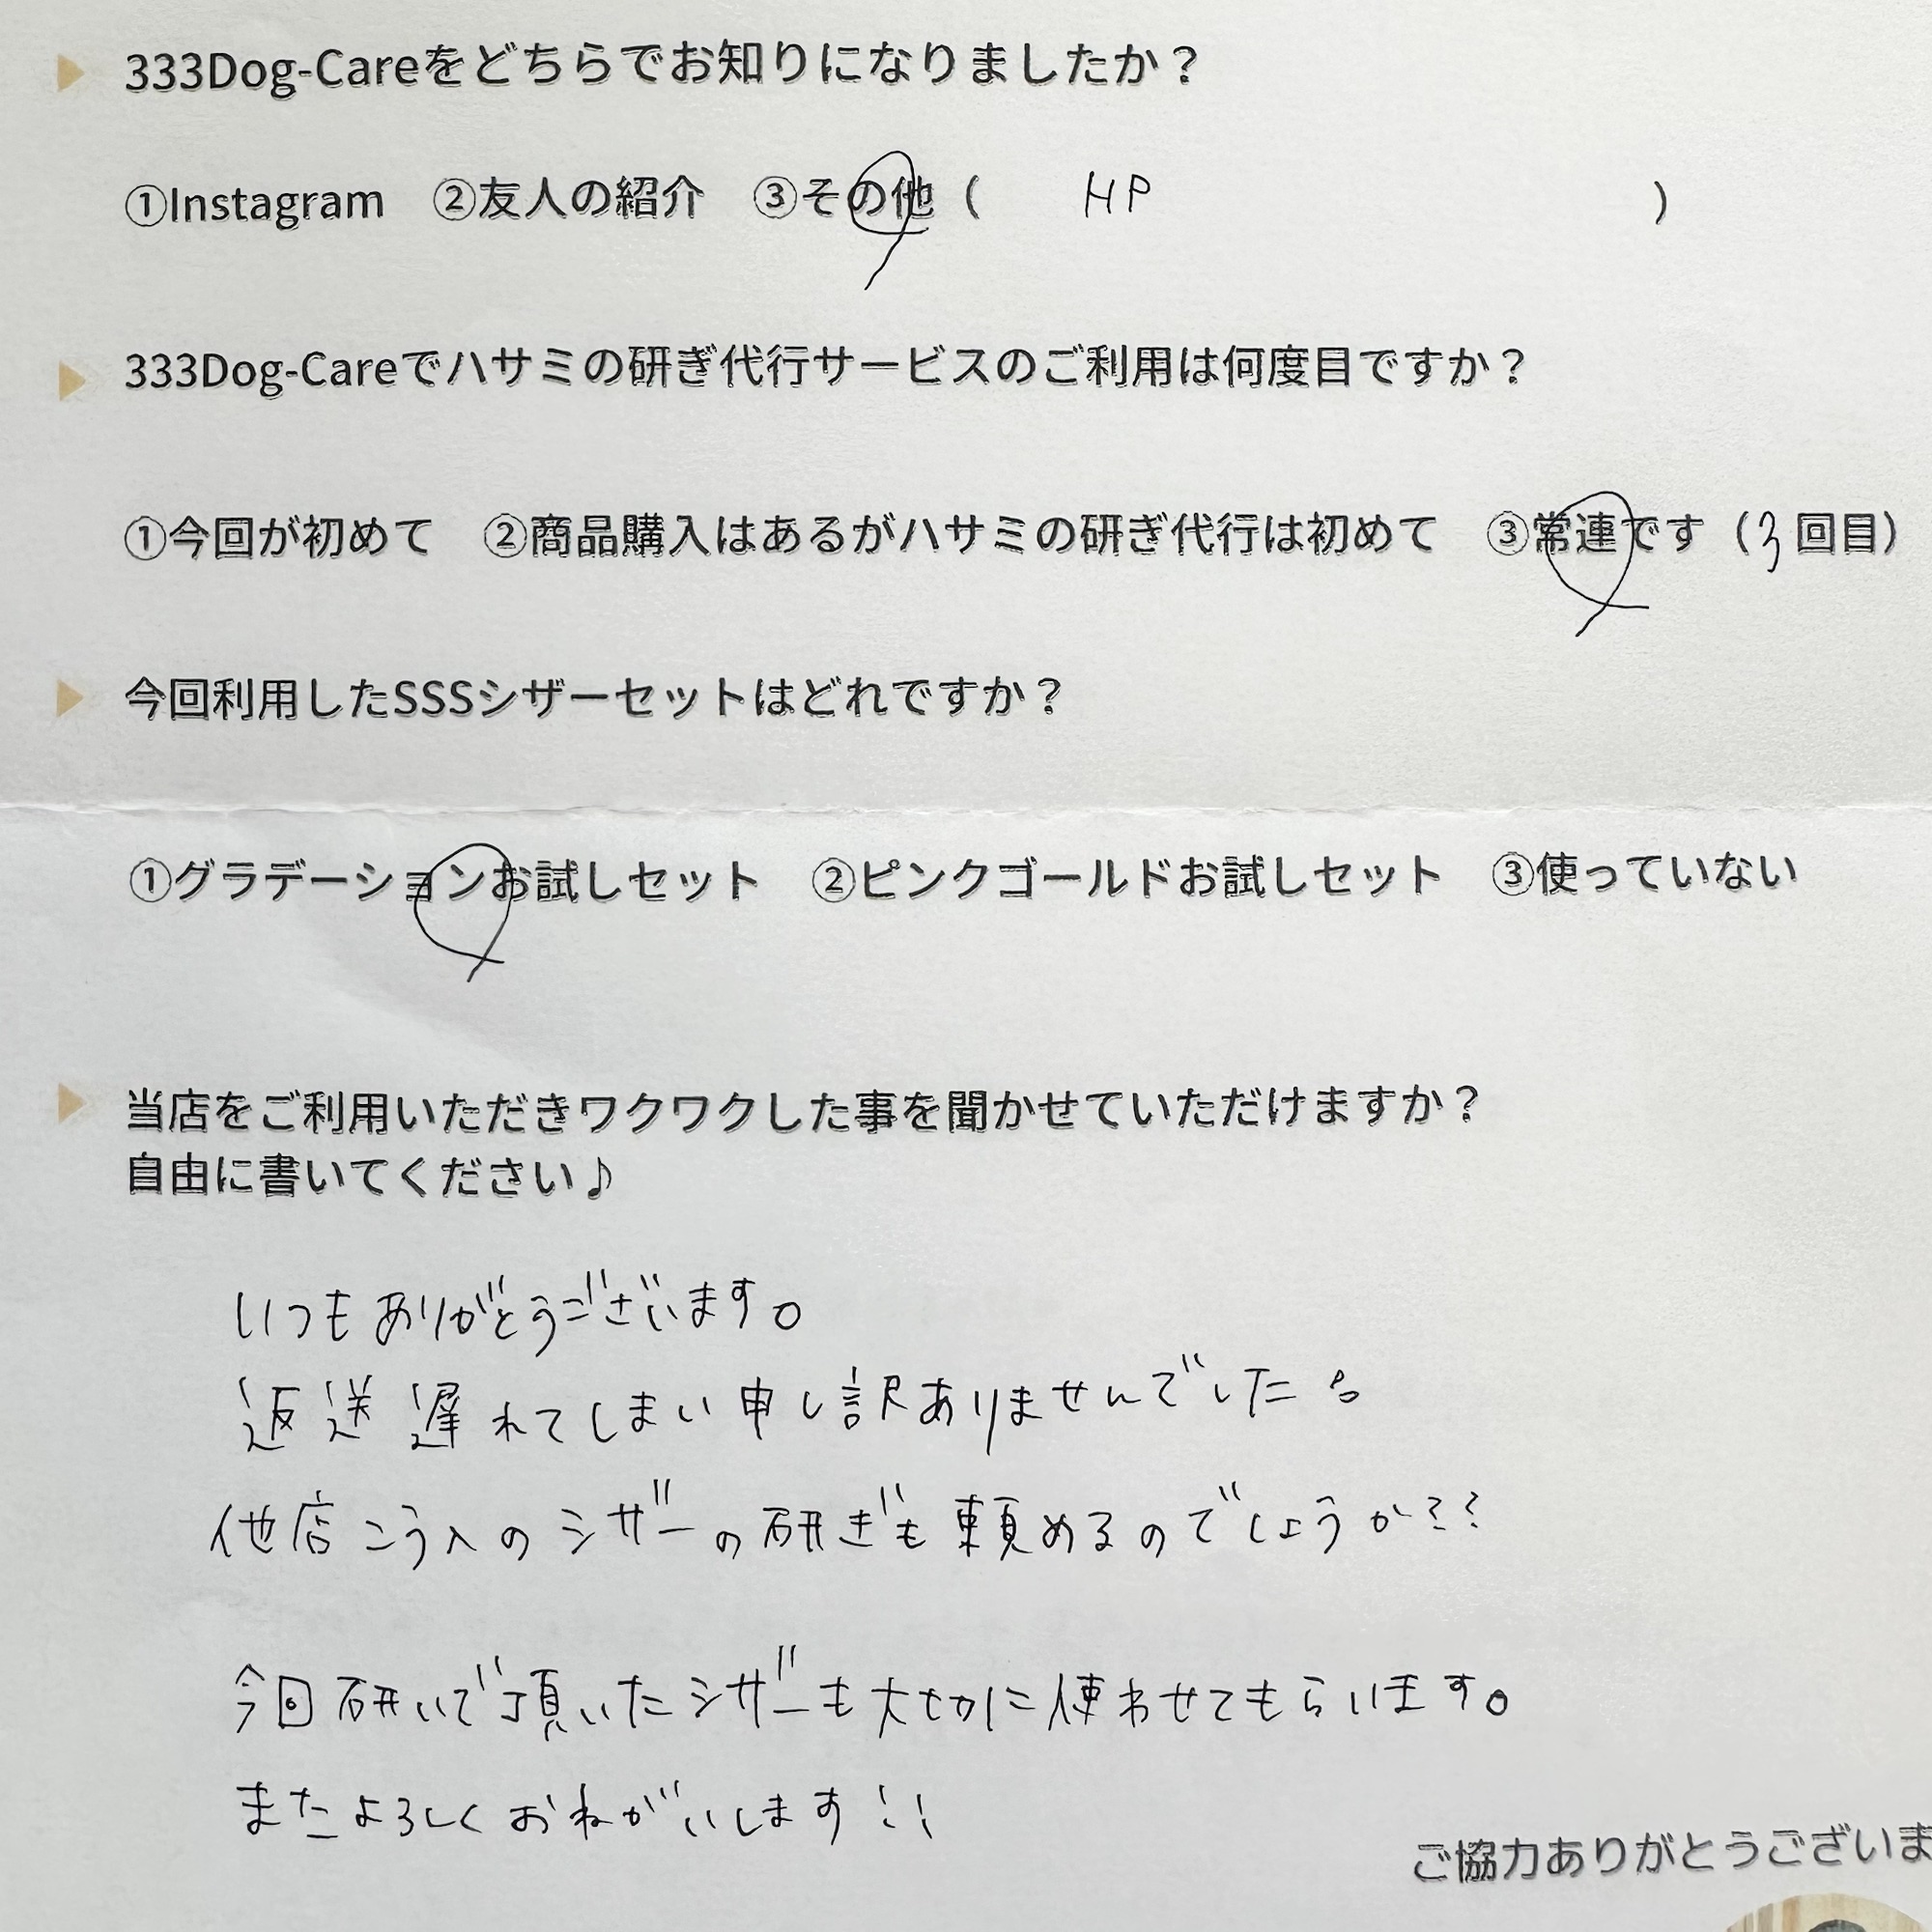 333Dog-Careをどちらでお知りになりましたか？
①Instagram　②友人の紹介　③その他（　HP　）
333Dog-Careでハサミの研ぎ代行サービスのご利用は何度目ですか？
①今回が初めて　②商品購入はあるがハサミの研ぎ代行は初めて　③常連です（3回目）
今回利用したSSSシザーセットはどれですか？
①グラデーションお試しセット　②ピンクゴールドお試しセット　③使っていない
当店をご利用いただきワクワクした事を聞かせていただけますか？
自由に書いてください♪
いつもありがとうございます。
返送遅れてしまい申し訳ありませんでした。
他店こう入のシザーの研ぎも頼めるのでしょうか??
今回研いで頂いたシザーも大切に使わせてもらいます。
またよろしくおねがいします!!
ご協力ありがとうございま